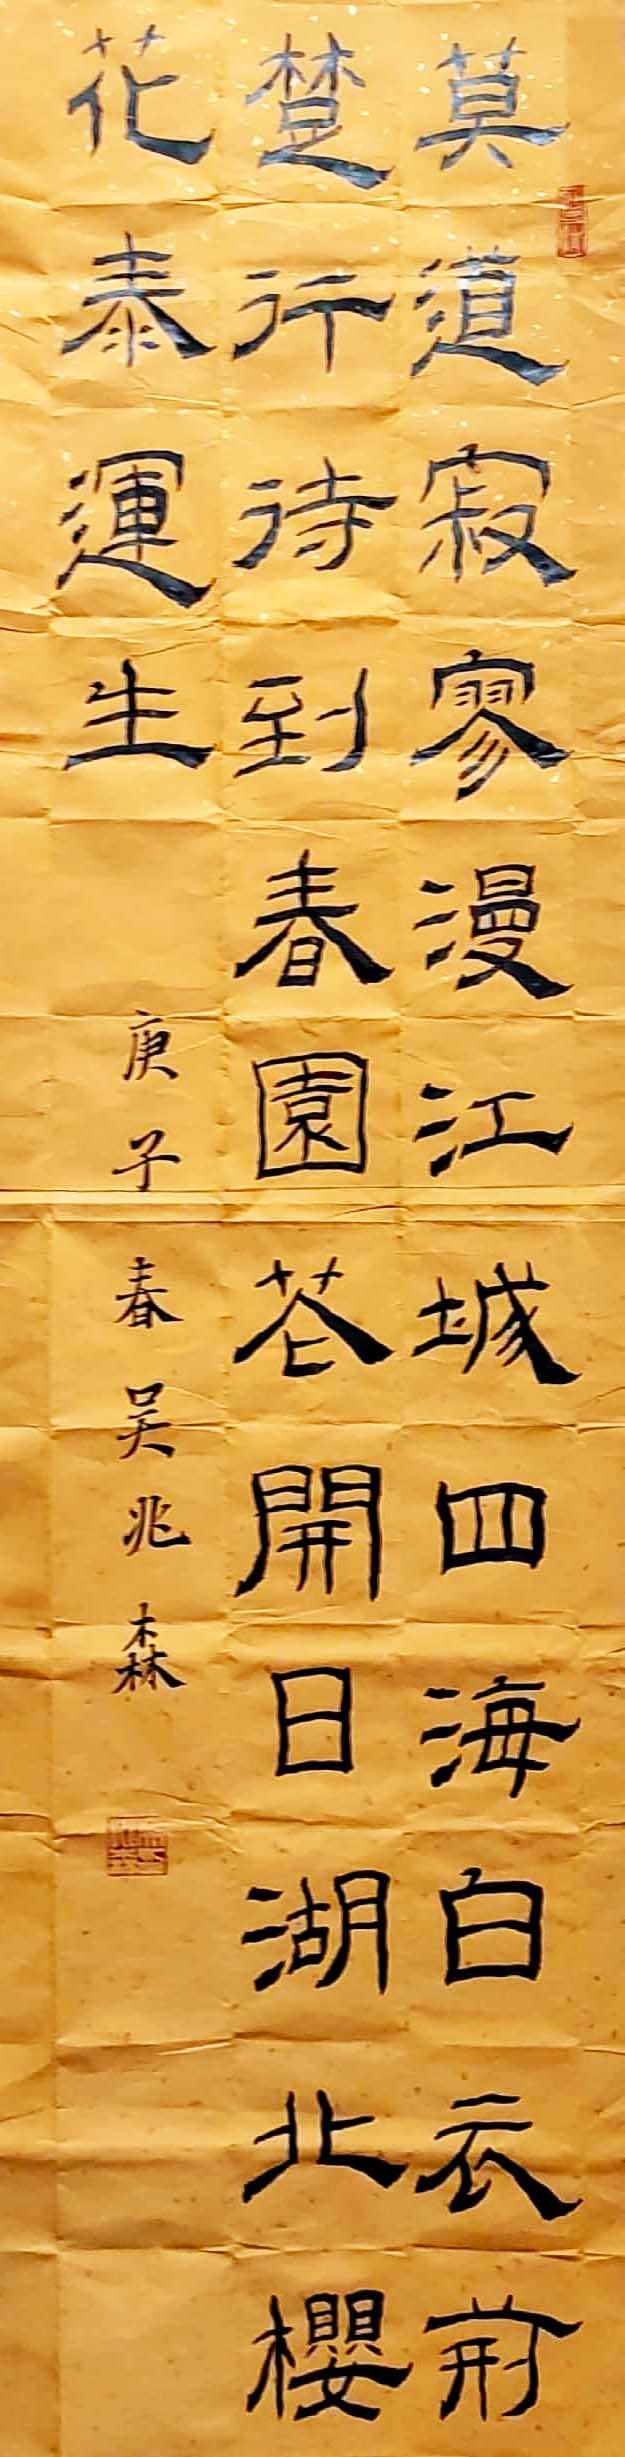 莫道寂寥漫江城四海白衣荊
楚行待到春園花開日湖北櫻
花泰運生
庚子春吳兆森